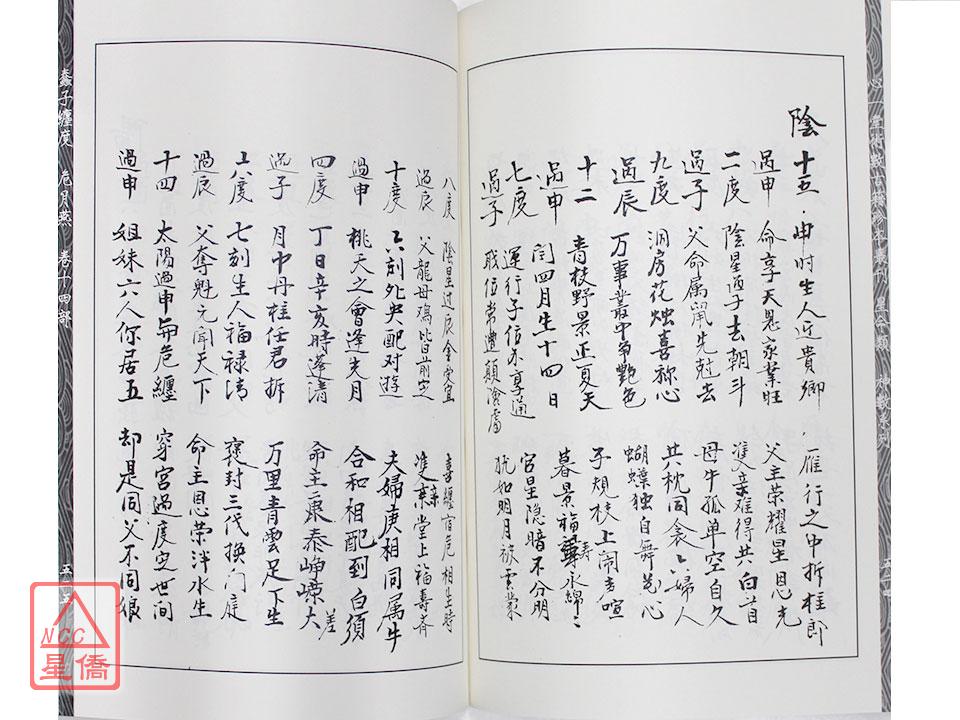 陰 十五 申時生人近貴卿 雁行之中折桂郎
過申 命享天恩家業旺 父主荣耀星恩光
二度 陰星過子去朝斗 雙亲難得共白首
過子 父命属鼠先尅去 母牛孤单空自久
九度 洞房花烛喜称心 共枕同衾
過辰 万事叢中争艷色 蝴蝶独自舞花心
十二 青枝野景正夏天 子規枝上闹声喧
過申 闰四月生十四日 暮景福壽永綿
七度 運行子位不亨通 宮星隐暗不分明
過子 职位常遭顛險處 犹如明月被雲蒙
八度 陰星过辰金受宜
過辰 父龍母鸡皆前定 雙亲堂上福壽齐
十度 六刻外央配对遊 夫婦庚相同属牛
過申 桃夭之會逢先月 合和相配到白須
四度 丁日辛亥時逢清 命主康泰峥嶸大差
過子 月中丹桂任君折 万里青雲足下生
十八度 七刻生人福禄清 褒封三代换门庭
過辰 父奪魁元闻天下 命主恩荣泮水生
十四 太陽過申而危纏 穿宮過度定世间
過申 姐妹六人你居五 却是同父不同娘
蠢子纏度 危月燕 卷十四部
NCC
星僑